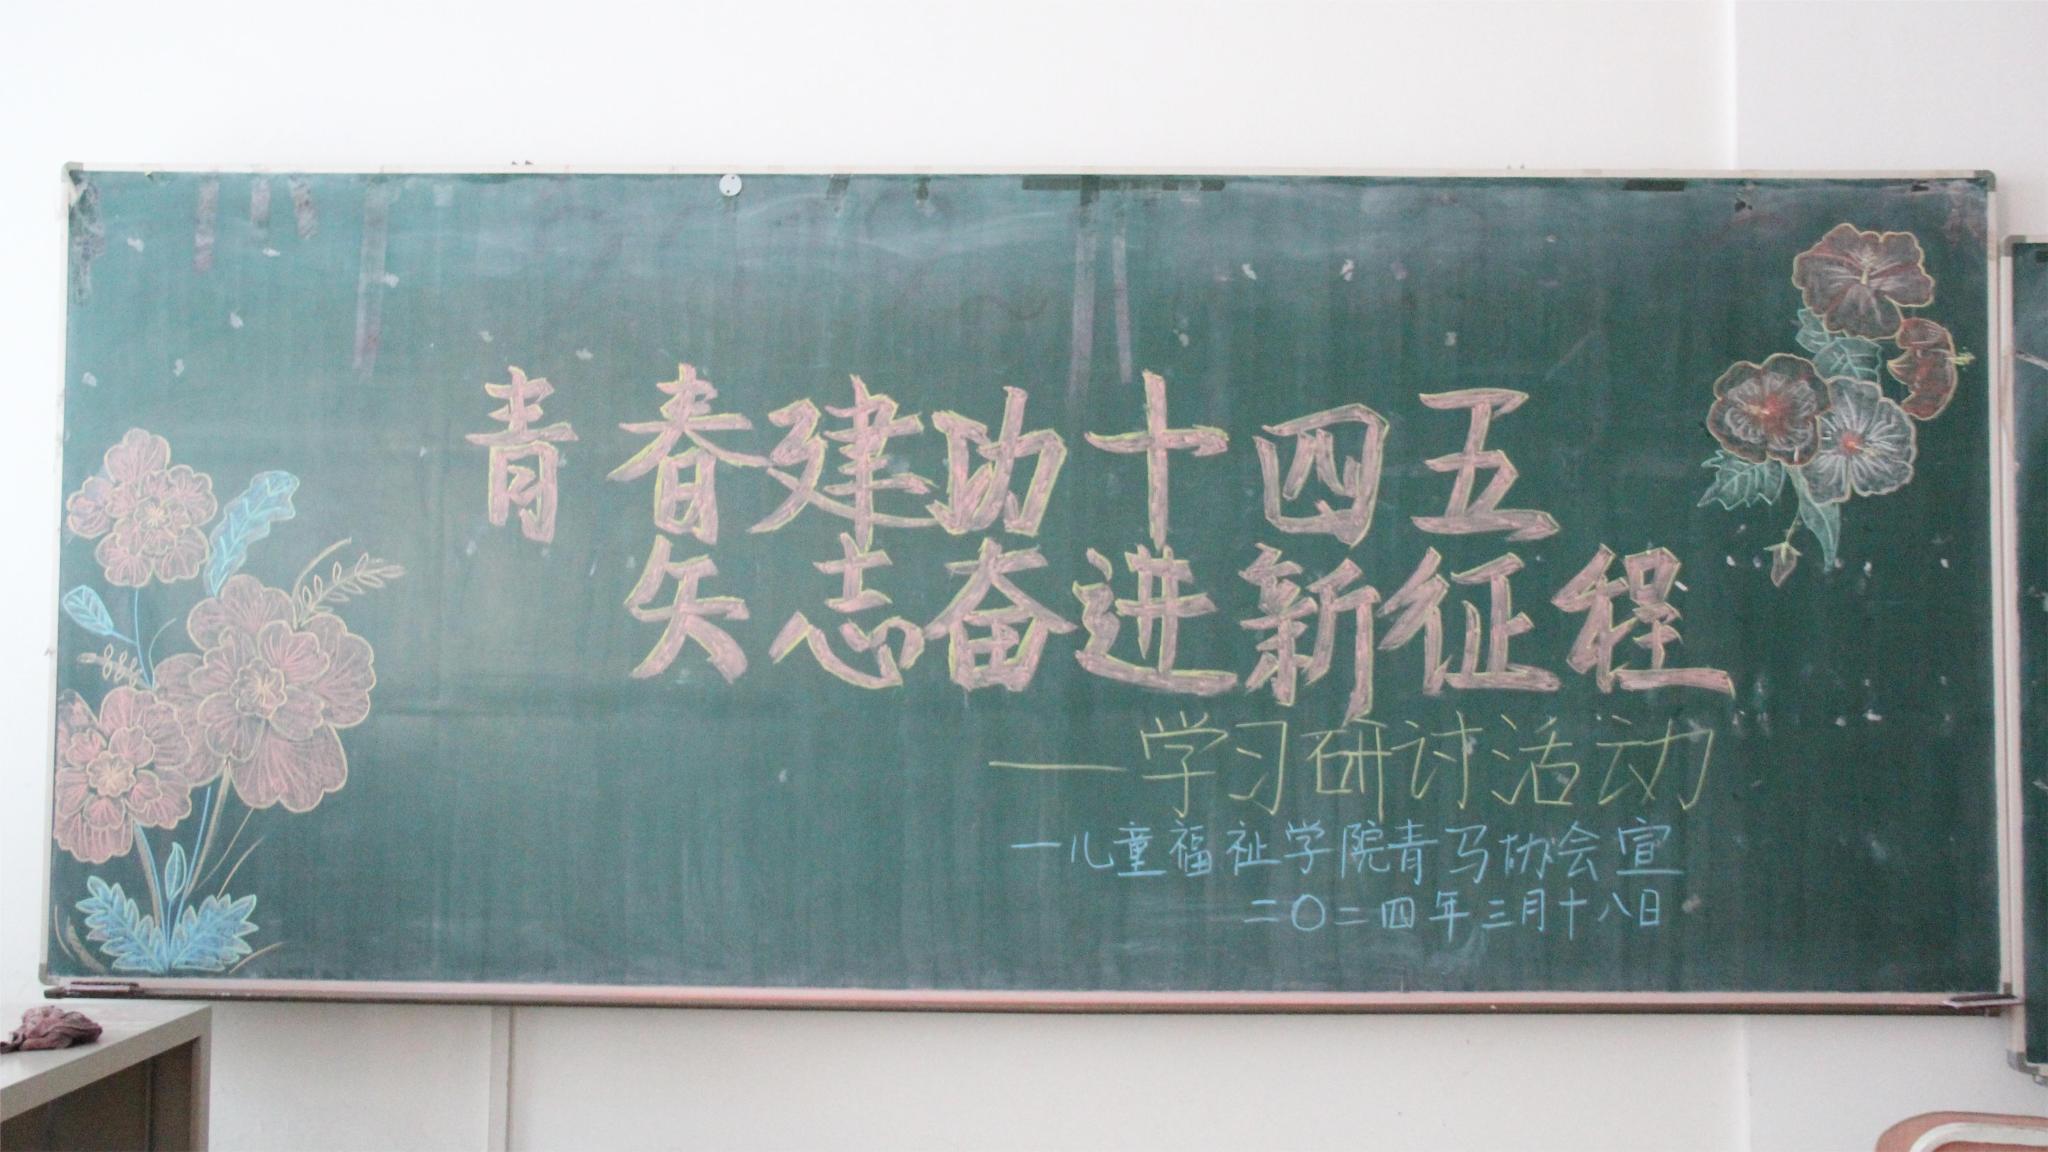 青春建功十四五
矢志奋进新征程
——学习研讨活动
—儿童福祉学院青马协会宣
二〇二四年三月十八日